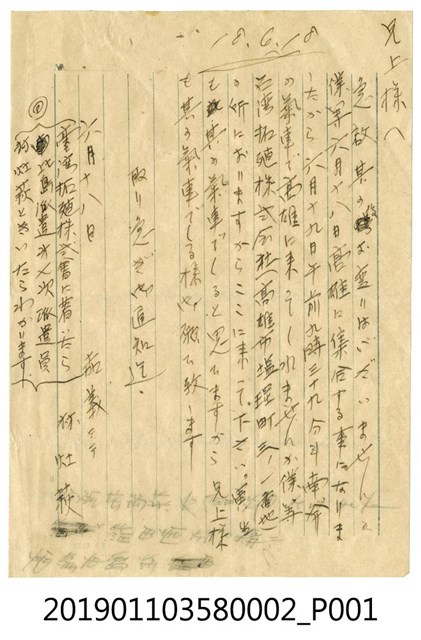 18.6.18
兄上様へ
急啓 其の後お変りはございませんか
僕等六月十八日高雄に集合する事になりま
したから六月十九日午前九時三十九分
の汽車で高雄に来てくれませんか 僕等
台湾拓殖株式会社(高雄市塩埕町三ノ一番地
の所におりますからここに来て下さい。
も其の汽車でしると思てますから兄上様
も其の汽車でしる様お願ひ致します
取り急ぎ御通知迄.
六月十八日
嘉義ニテ 林灶萩
台湾拓殖株式会社に着いたら
海南島派遣第七次派遣員
林灶萩ときいたらわかります
201901103580002_P001